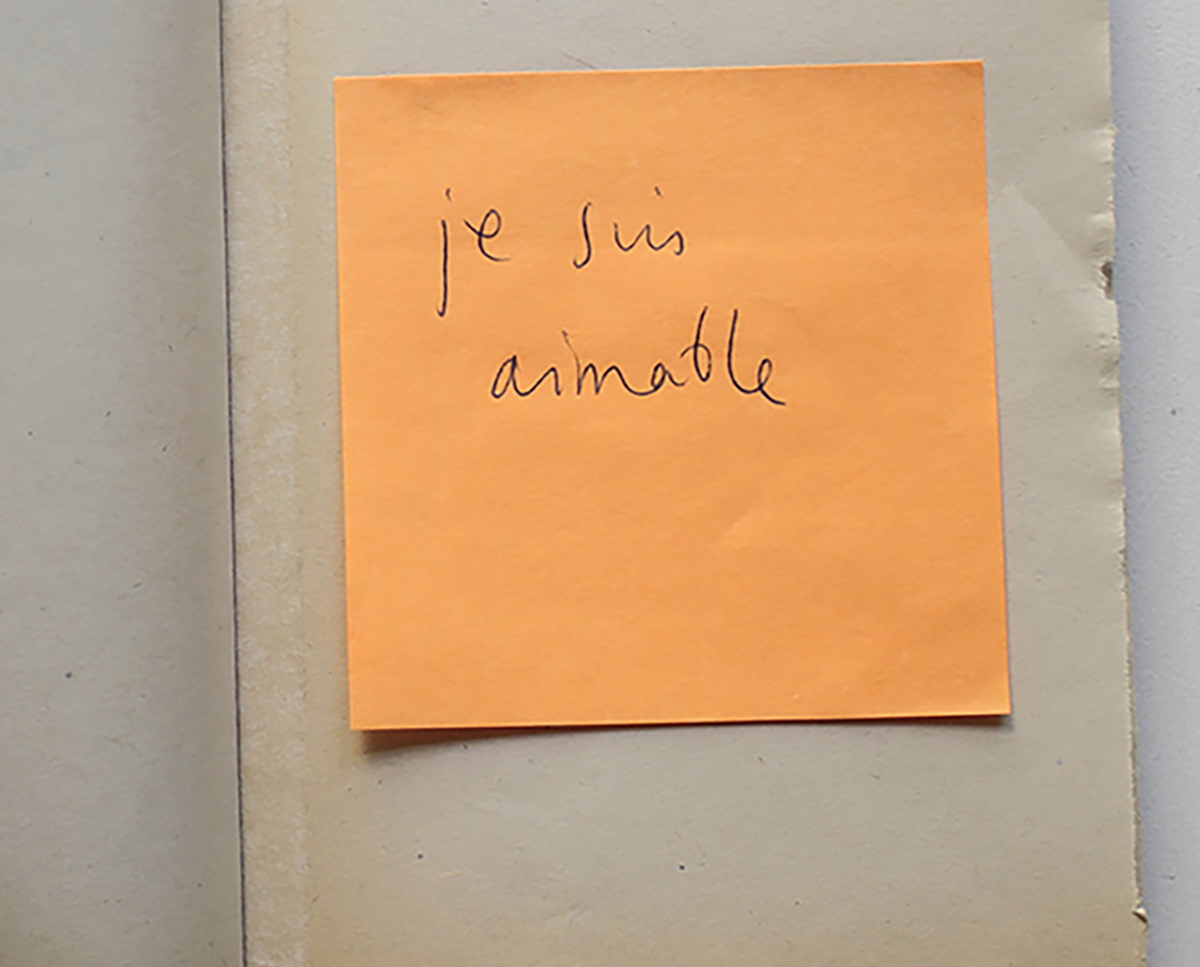 je suis
aimable